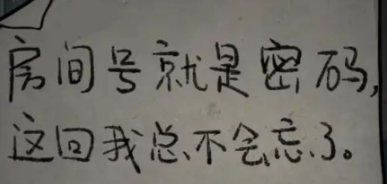 房间号就是密码,
这回我总不会忘了。